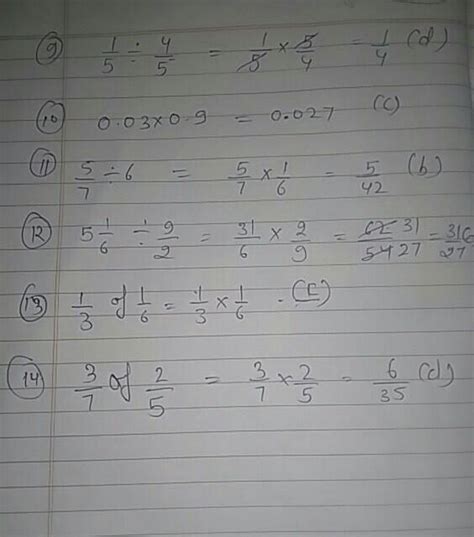 9 1/5 ÷ 4/5 = 1/5 × 5/4 = 1/4 (d)
10 0.03×0.9 = 0.027 (c)
11 5/7 ÷ 6 = 5/7 × 1/6 = 5/42 (b)
12 5 1/6 ÷ 9/2 = 31/6 × 2/9 = 62 31/54 27 = 31/27
13 1/3 of 1/6 = 1/3 × 1/6 .
14 3/7 of 2/5 = 3/7 × 2/5 = 6/35 (d)